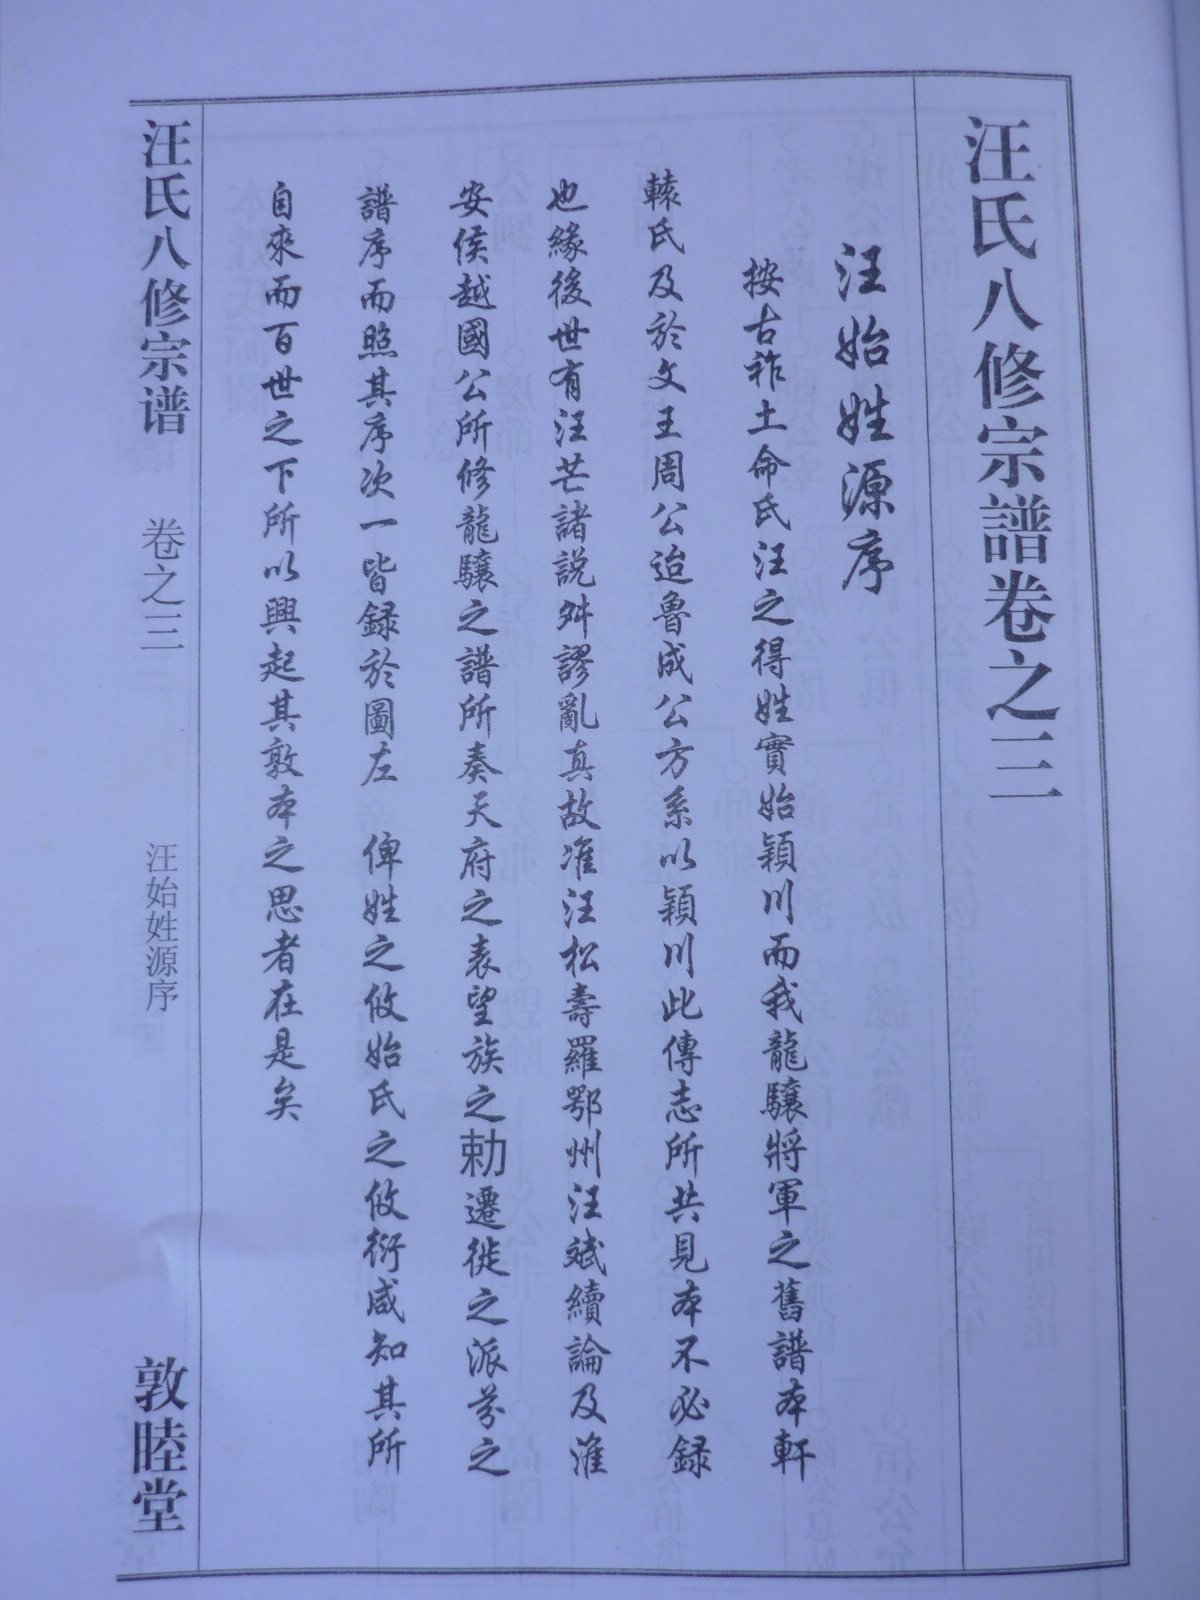 汪氏八修宗譜卷之三
汪始姓源序
按古祚土命氏汪之得姓實始潁川而我龍驤將軍之舊譜本軒
轅氏及於文王周公迨魯成公方系以潁川此傳志所共見本不必録
也緣後世有汪芒諸説舛謬亂真故准汪松壽羅鄂州汪斌續論及淮
安侯越國公所修龍驤之譜所奏天府之表望族之勅遷徙之派芬之
譜序而照其序次一皆録於圖左 俾姓之攸始氏之攸衍咸知其所
自來而百世之下所以興起其敦本之思者在是矣
汪氏八修宗谱 卷之三 汪始姓源序 敦睦堂